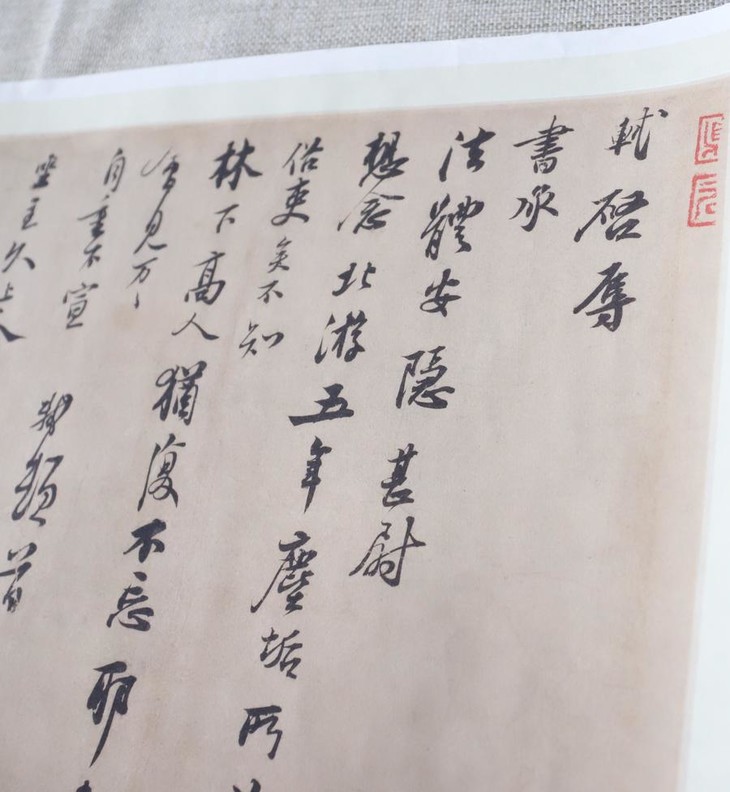 軾啓辱
書承
法體安隱甚尉
想念北游五年塵垢所
俗吏矣不知
林下高人猶復不忘耶
會見万〻
自重不宣 軾頓首
坐主久上人